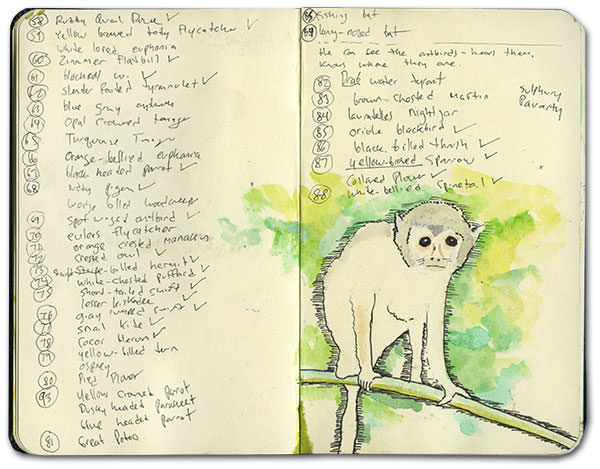 58 Ruddy Quail Dove ✓
59 Yellow browed tody flycatcher ✓
white lored euphonia
60 Zimmer Flatbill ✓
61 ✓
62 slender footed tyrannulet ✓
63 blue gray
64 Opal Crowned tanager
65 Turquoise Tanager
66 Orange-bellied euphonia
67 black headed parrot ✓
68 ruddy pigeon ✓
wedge billed woodcreeper
69 spot winged antbird ✓
70 eulers flycatcher
71 orange crested manakin
72 crested owl ✓
73 billed hermit ✓
74 white-chested puffbird ✓
75 short-tailed swift ✓
lesser kiskadee ✓
76 gray rumped swift ✓
77 snail kite ✓
78 cocoi Heron ✓
79 yellow-billed tern
osprey
80 Pied Plover ✓
93 Yellow Crowned Parrot
Dusky headed Parakeet ✓
blue headed Parrot
81 Great Potoo
fishing bat
long-nosed bat
He can see the antbirds - hears them,
knows where they are.
82 water tyrant
83 brown-chested Martin
84 Nightjar
85 oriole blackbird ✓
86 black-billed thrush ✓
87 yellow-browed Sparrow ✓
Collared Plover ✓
88 white-bellied Spinetail ✓
Sulphury